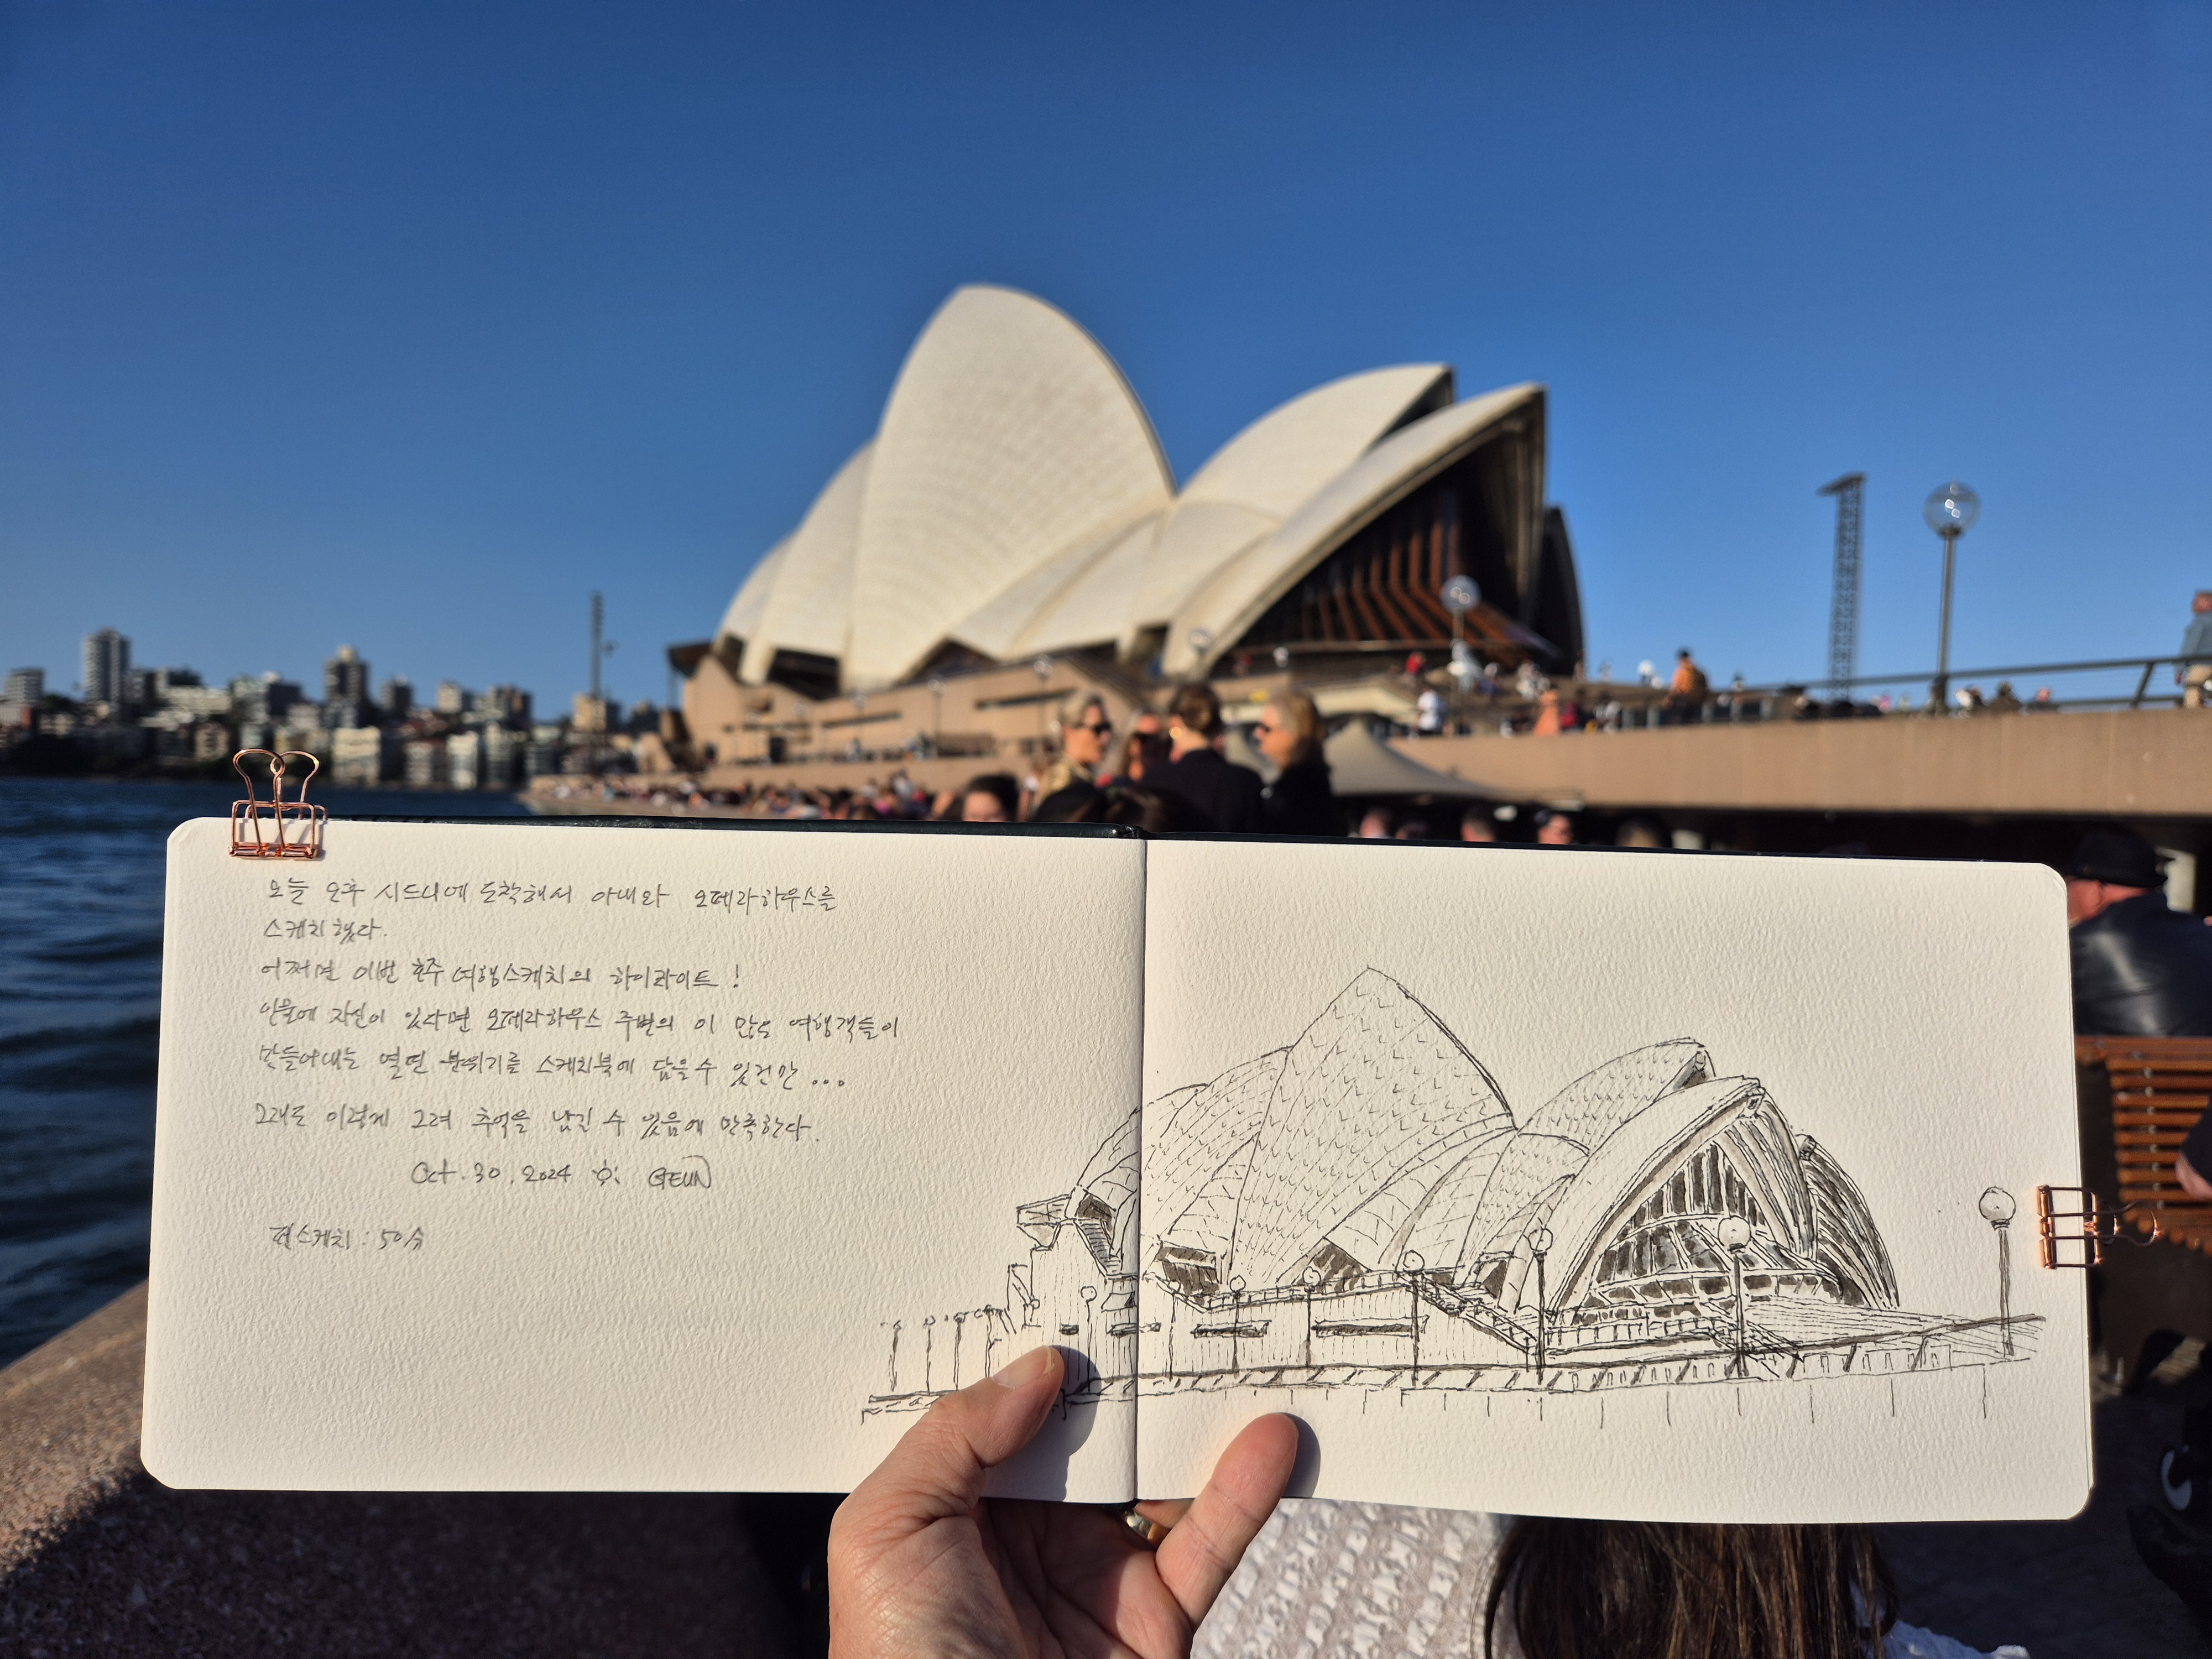 오늘 오후 시드니에 도착해서 아내와 오페라하우스를
스케치했다.
어쩌면 이번 호주 여행스케치의 하이라이트!
인물에 자신이 있다면 오페라하우스 주변의 이 많은 여행객들이
만들어내는 열띤 분위기를 스케치북에 담을 수 있건만...
그래도 이렇게 그려 추억을 남길 수 있음에 만족한다.
Oct. 30. 2024 GEUN
펜스케치 : 50分